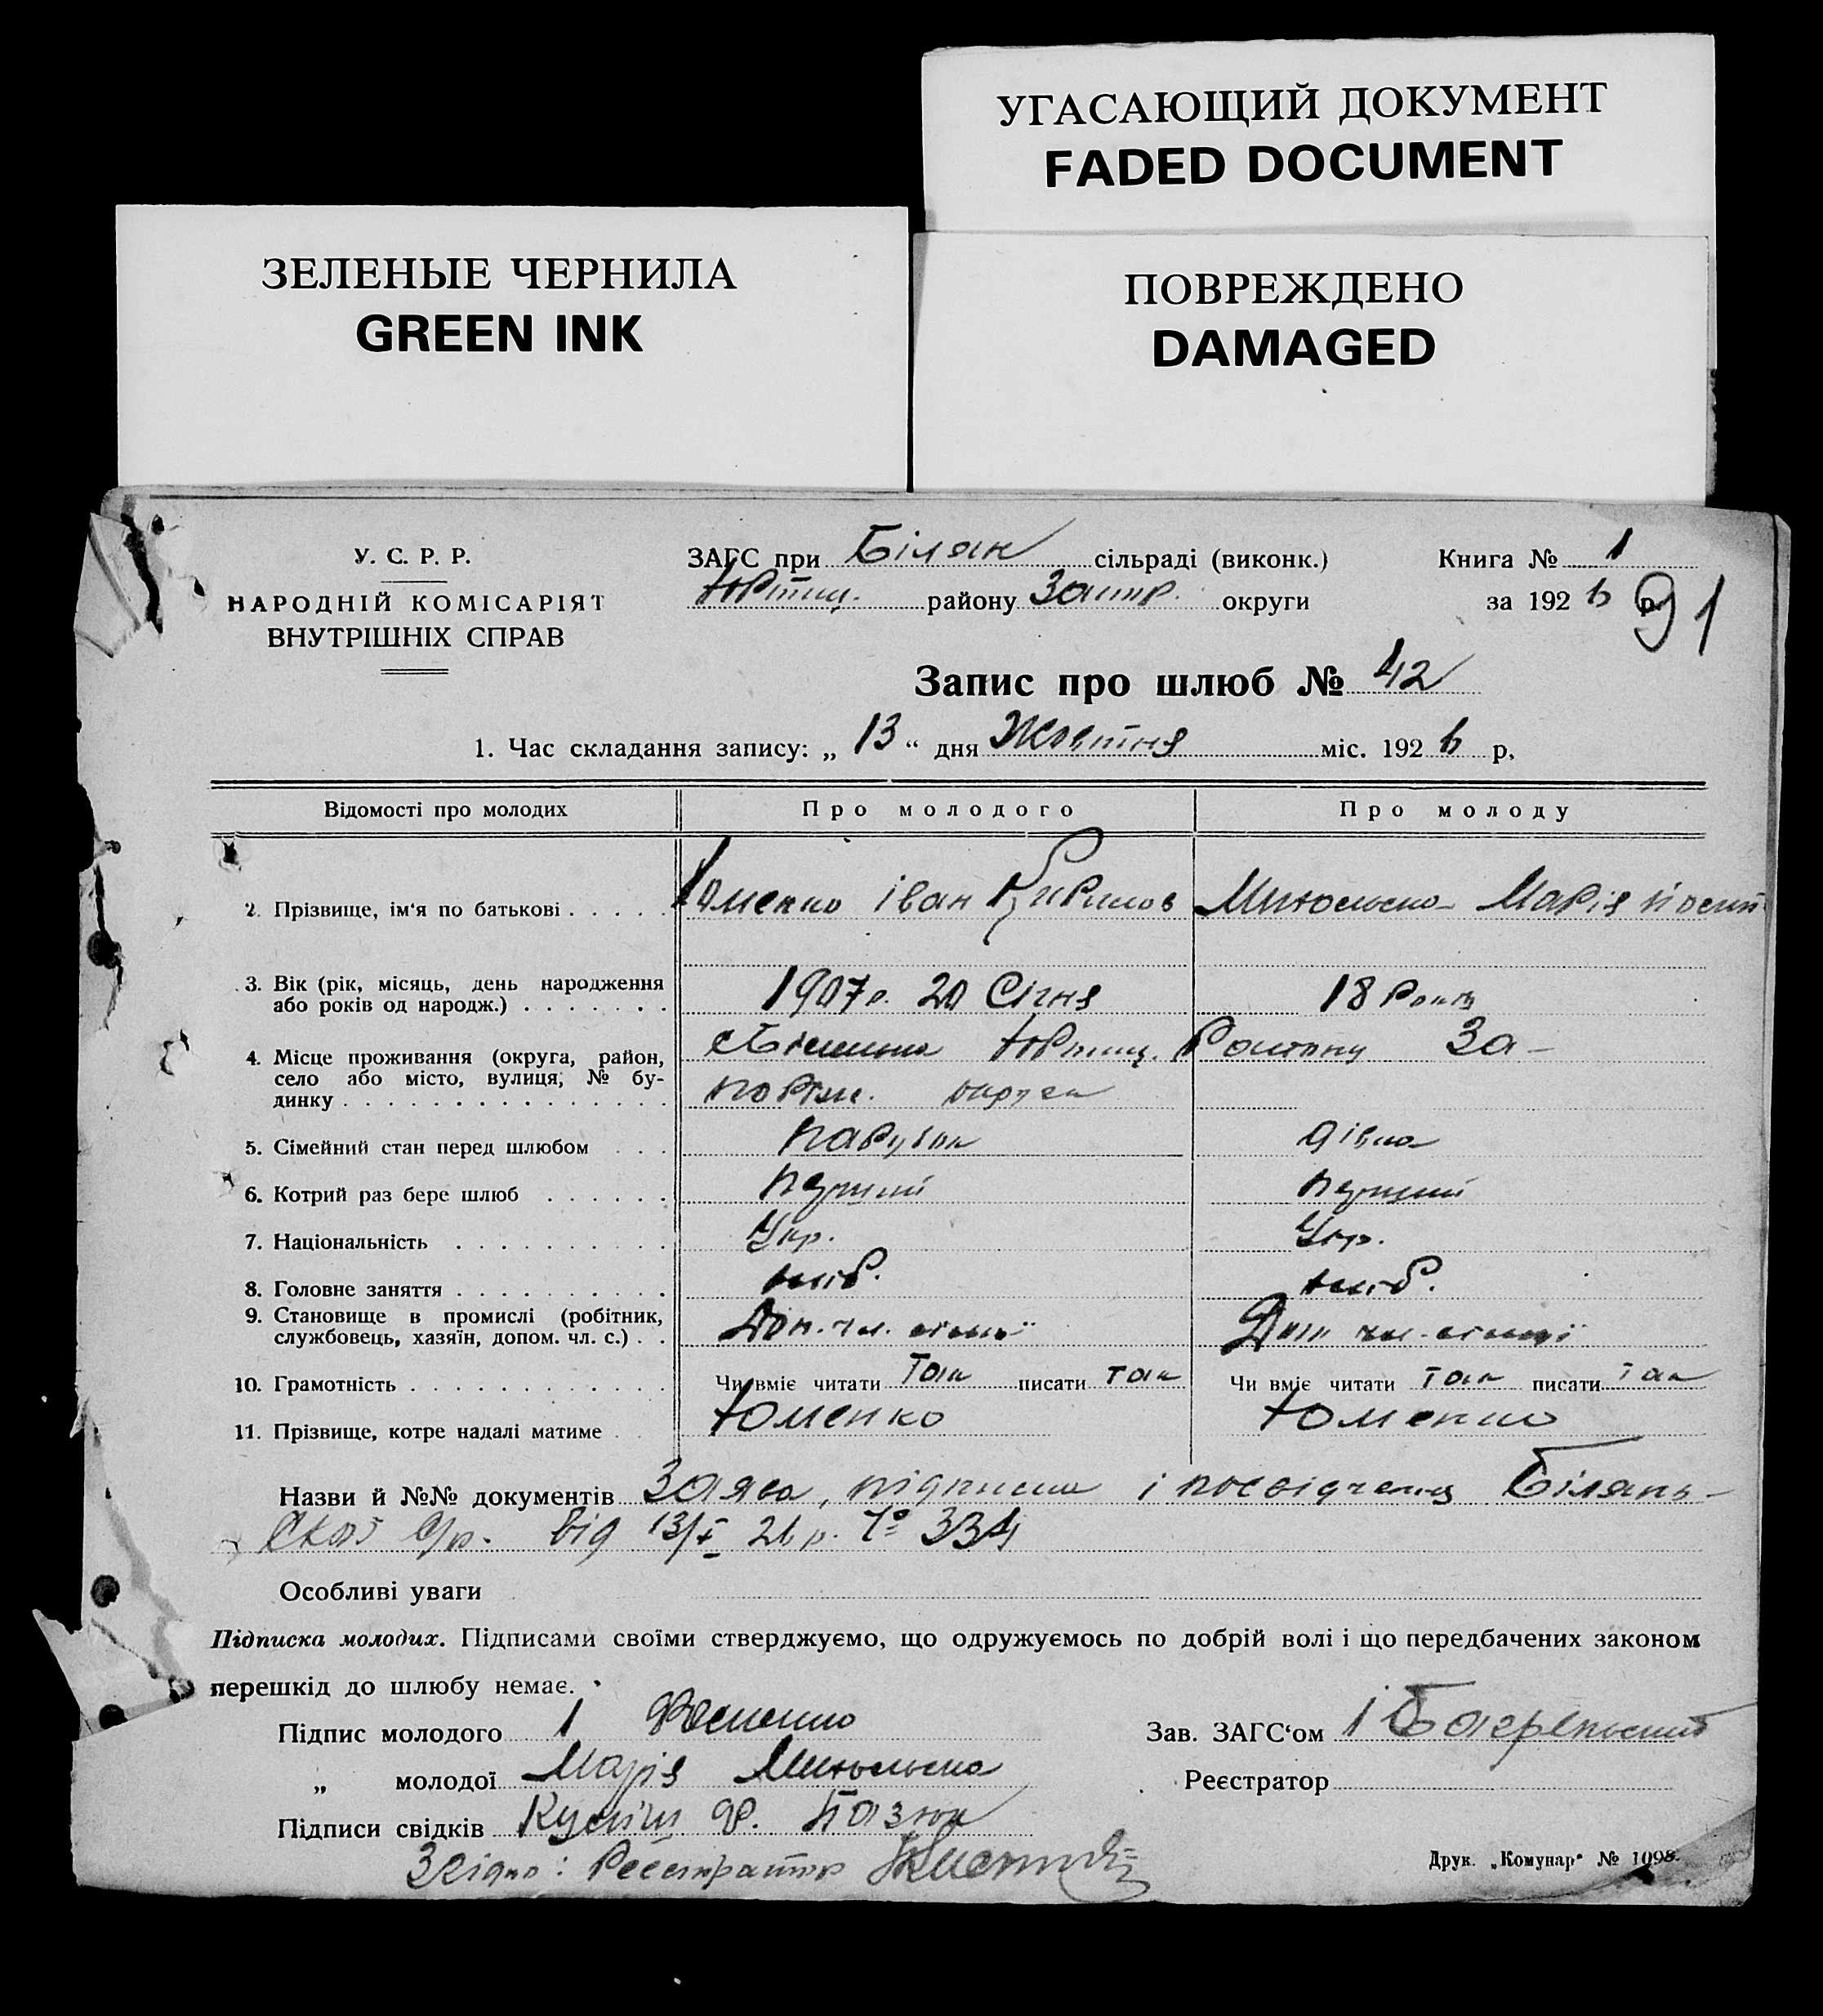 УГАСАЮЩИЙ ДОКУМЕНТ
FADED DOCUMENT
ЗЕЛЕНЫЕ ЧЕРНИЛА
GREEN INK
ПОВРЕЖДЕНО
DAMAGED
У. С. Р. Р.
НАРОДНІЙ КОМІСАРІЯТ
ВНУТРІШНІХ СПРАВ
ЗАГС при Білян сільраді (виконк.)
району Запор. округи
Книга № 1
за 1926 р.
91
Запис про шлюб № 42
1. Час складання запису: „ 13 “ дня Жовтня міс. 1926 р,
Відомості про молодих Про молодого Про молоду
2. Прізвище, ім'я по батькові Юменко Іван Кирилов Марія Йосип
3. Вік (рік, місяць, день народження 1907 р. 20 Січня 18 років
або років од народж.)
4. Місце проживання (округа, район, За-
село або місто, вулиця; № бу- поріж. округи
динку
5. Сімейний стан перед шлюбом парубок дівка
6. Котрий раз бере шлюб перший перший
7. Національність Укр. Укр.
8. Головне заняття хліб. хліб.
9. Становище в промислі (робітник, Доп. чл. сімьї Доп чл. сімьї
службовець, хазяїн, допом. чл. с.)
10. Грамотність Чи вміє читати так писати так Чи вміє читати так писати так
11. Прізвище, котре надалі матиме Юменко Юменко
Назви й №№ документів Заява, підписка і посвідчення Білянь-
ської с/р. від 13/X 26 р. № 334
Особливі уваги
Підписка молодих. Підписами своїми стверджуємо, що одружуємось по добрій волі і що передбачених законом
перешкід до шлюбу немає.
Підпис молодого І
„ молодої Марія
Підписи свідків Ф.
Зав. ЗАГС'ом І
Реєстратор
Згідно: Реєстратор
Друк. „Комунар“ № 1098.